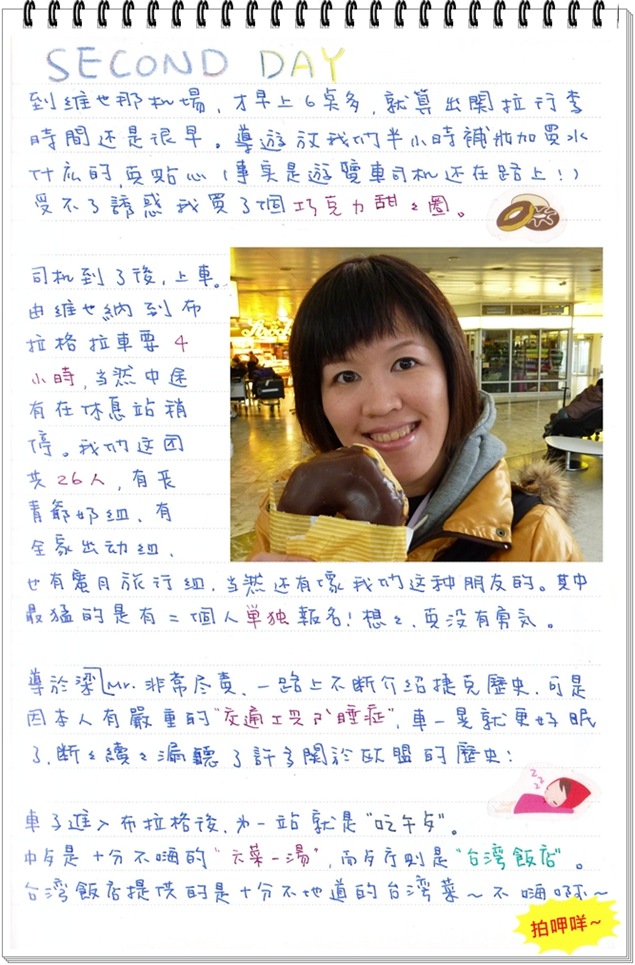 SECOND DAY
到維也那机場，才早上6点多，就算出関拉行李
時間还是很早。導遊放我们半小時補妝加買水
什広的，真點心（事实是遊覽車司机还在路上！）
受不了誘惑我買了個巧克力甜々圈。
司机到了後，上車。
由維也納到布
拉格拉車要4
小時，当然中途
有在休息站稍
停。我们这团
共26人，有長
青爺奶組、有
全家出动組、
也有蜜月旅行組，当然还有像我们这种朋友的。其中
最猛的是有二個人単独報名！想々，真没有勇气。
導游梁Mr.非常尽責，一路上不断介紹捷克歷史，可是
因本人有嚴重的"交通工具的睡症"，車一晃就更好眠
了，断々續々漏聽了許多関於欧盟的歷史：
車子進入布拉格後，第一站就是"吃午歺"。
中歺是十分不嗨的"六菜一湯"，而歺厅則是"台湾飯店"。
台湾飯店提供的是十分不地道的台湾菜～不嗨啊～
拍呷咩~